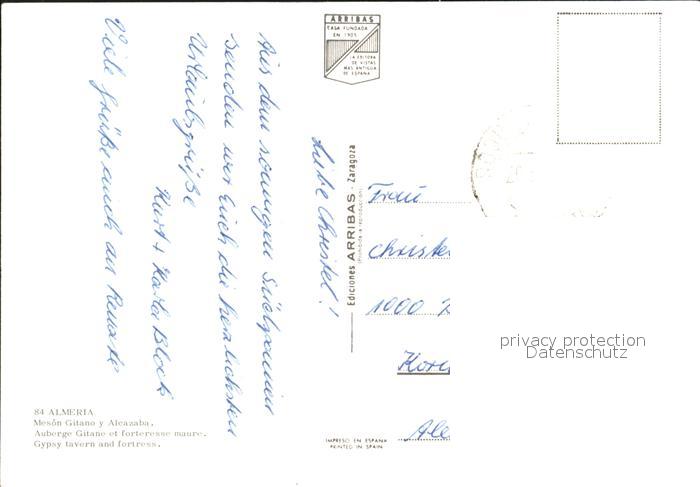 ARRIBAS
CASA FUNDADA
EN 1905
LA EDITORA
DE VISTAS
MAS ANTIGUA
DE ESPAÑA
Liebe Christel!
Aus dem sonnigen Südspanien
senden wir Euch die herzlichsten
Urlaubsgrüße
Kurt + Karla Block
Viele Grüße auch an Renate
Ediciones ARRIBAS - Zaragoza
(Prohibida la reproducción)
Frau
Christe
1000
privacy protection
Datenschutz
84 ALMERIA
Mesón Gitano y Alcazaba.
Auberge Gitane et forteresse maure.
Gypsy tavern and fortress.
IMPRESO EN ESPAÑA
PRINTED IN SPAIN